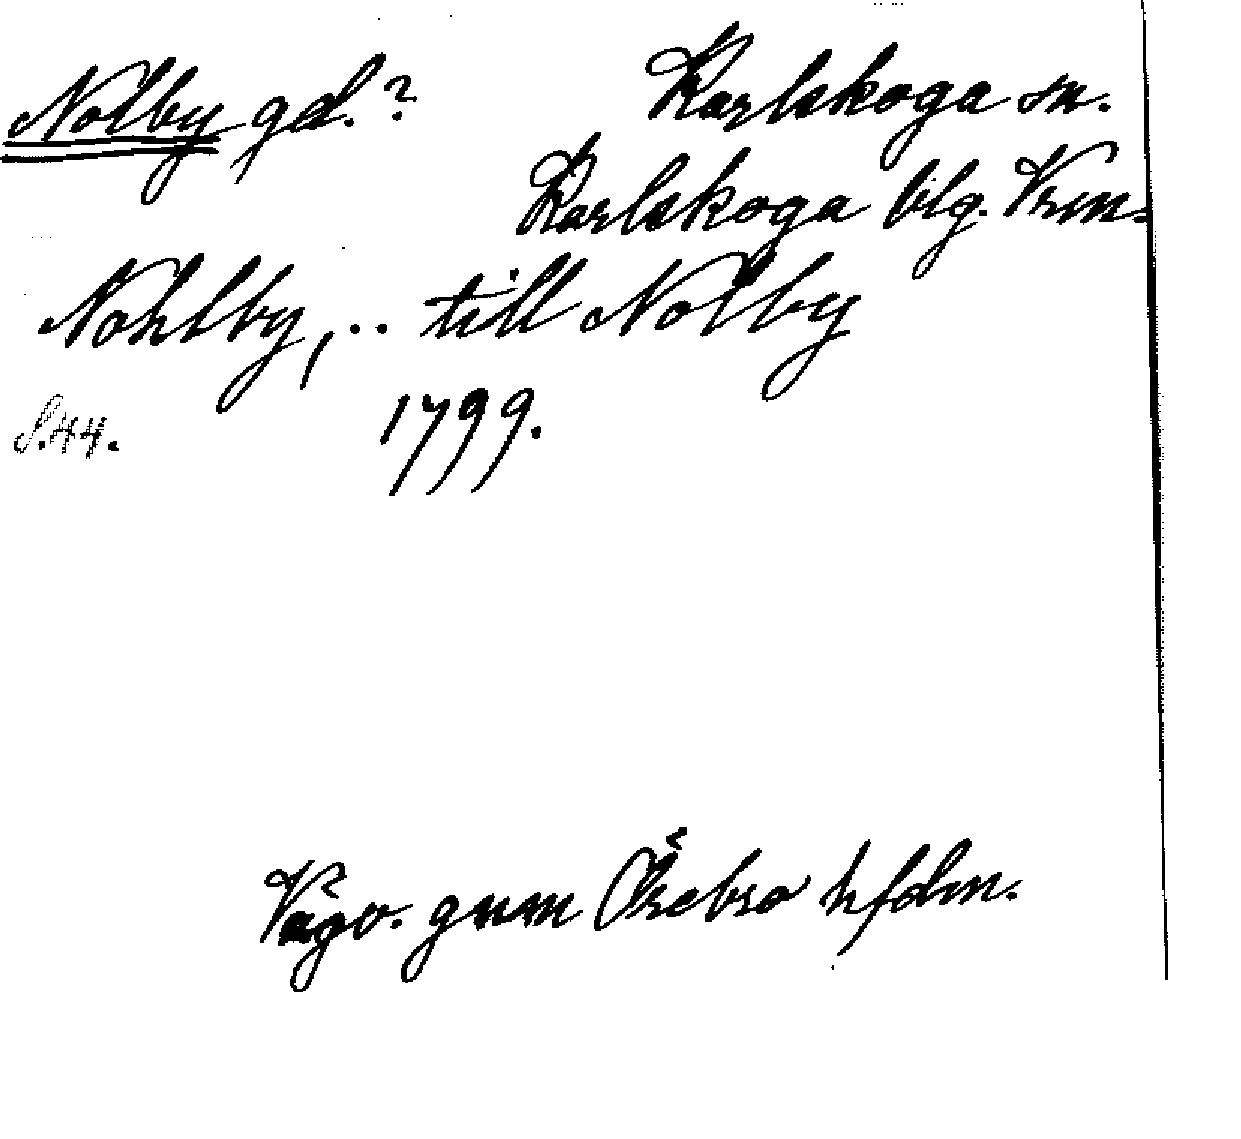 Nolby gd.? Karlskoga sn.
Karlskoga blg. Vrm.
Nohlby, .. till Nolby
S. 44. 1799.
Vägv. gnm Örebro hfdm.